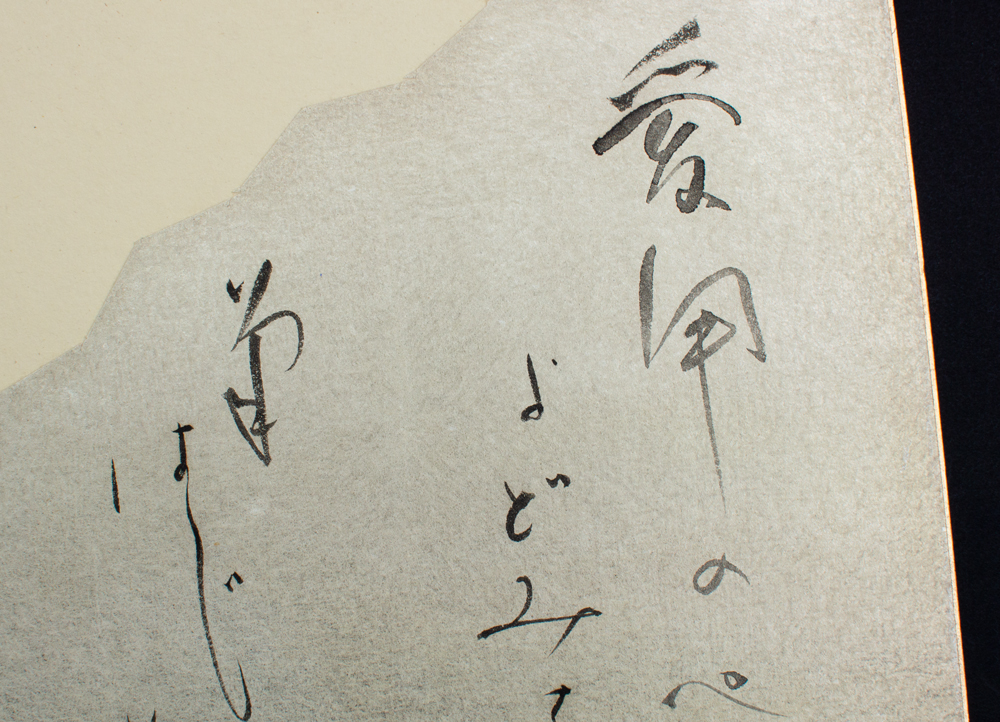 愛用のペ
よどみ
筆はじ